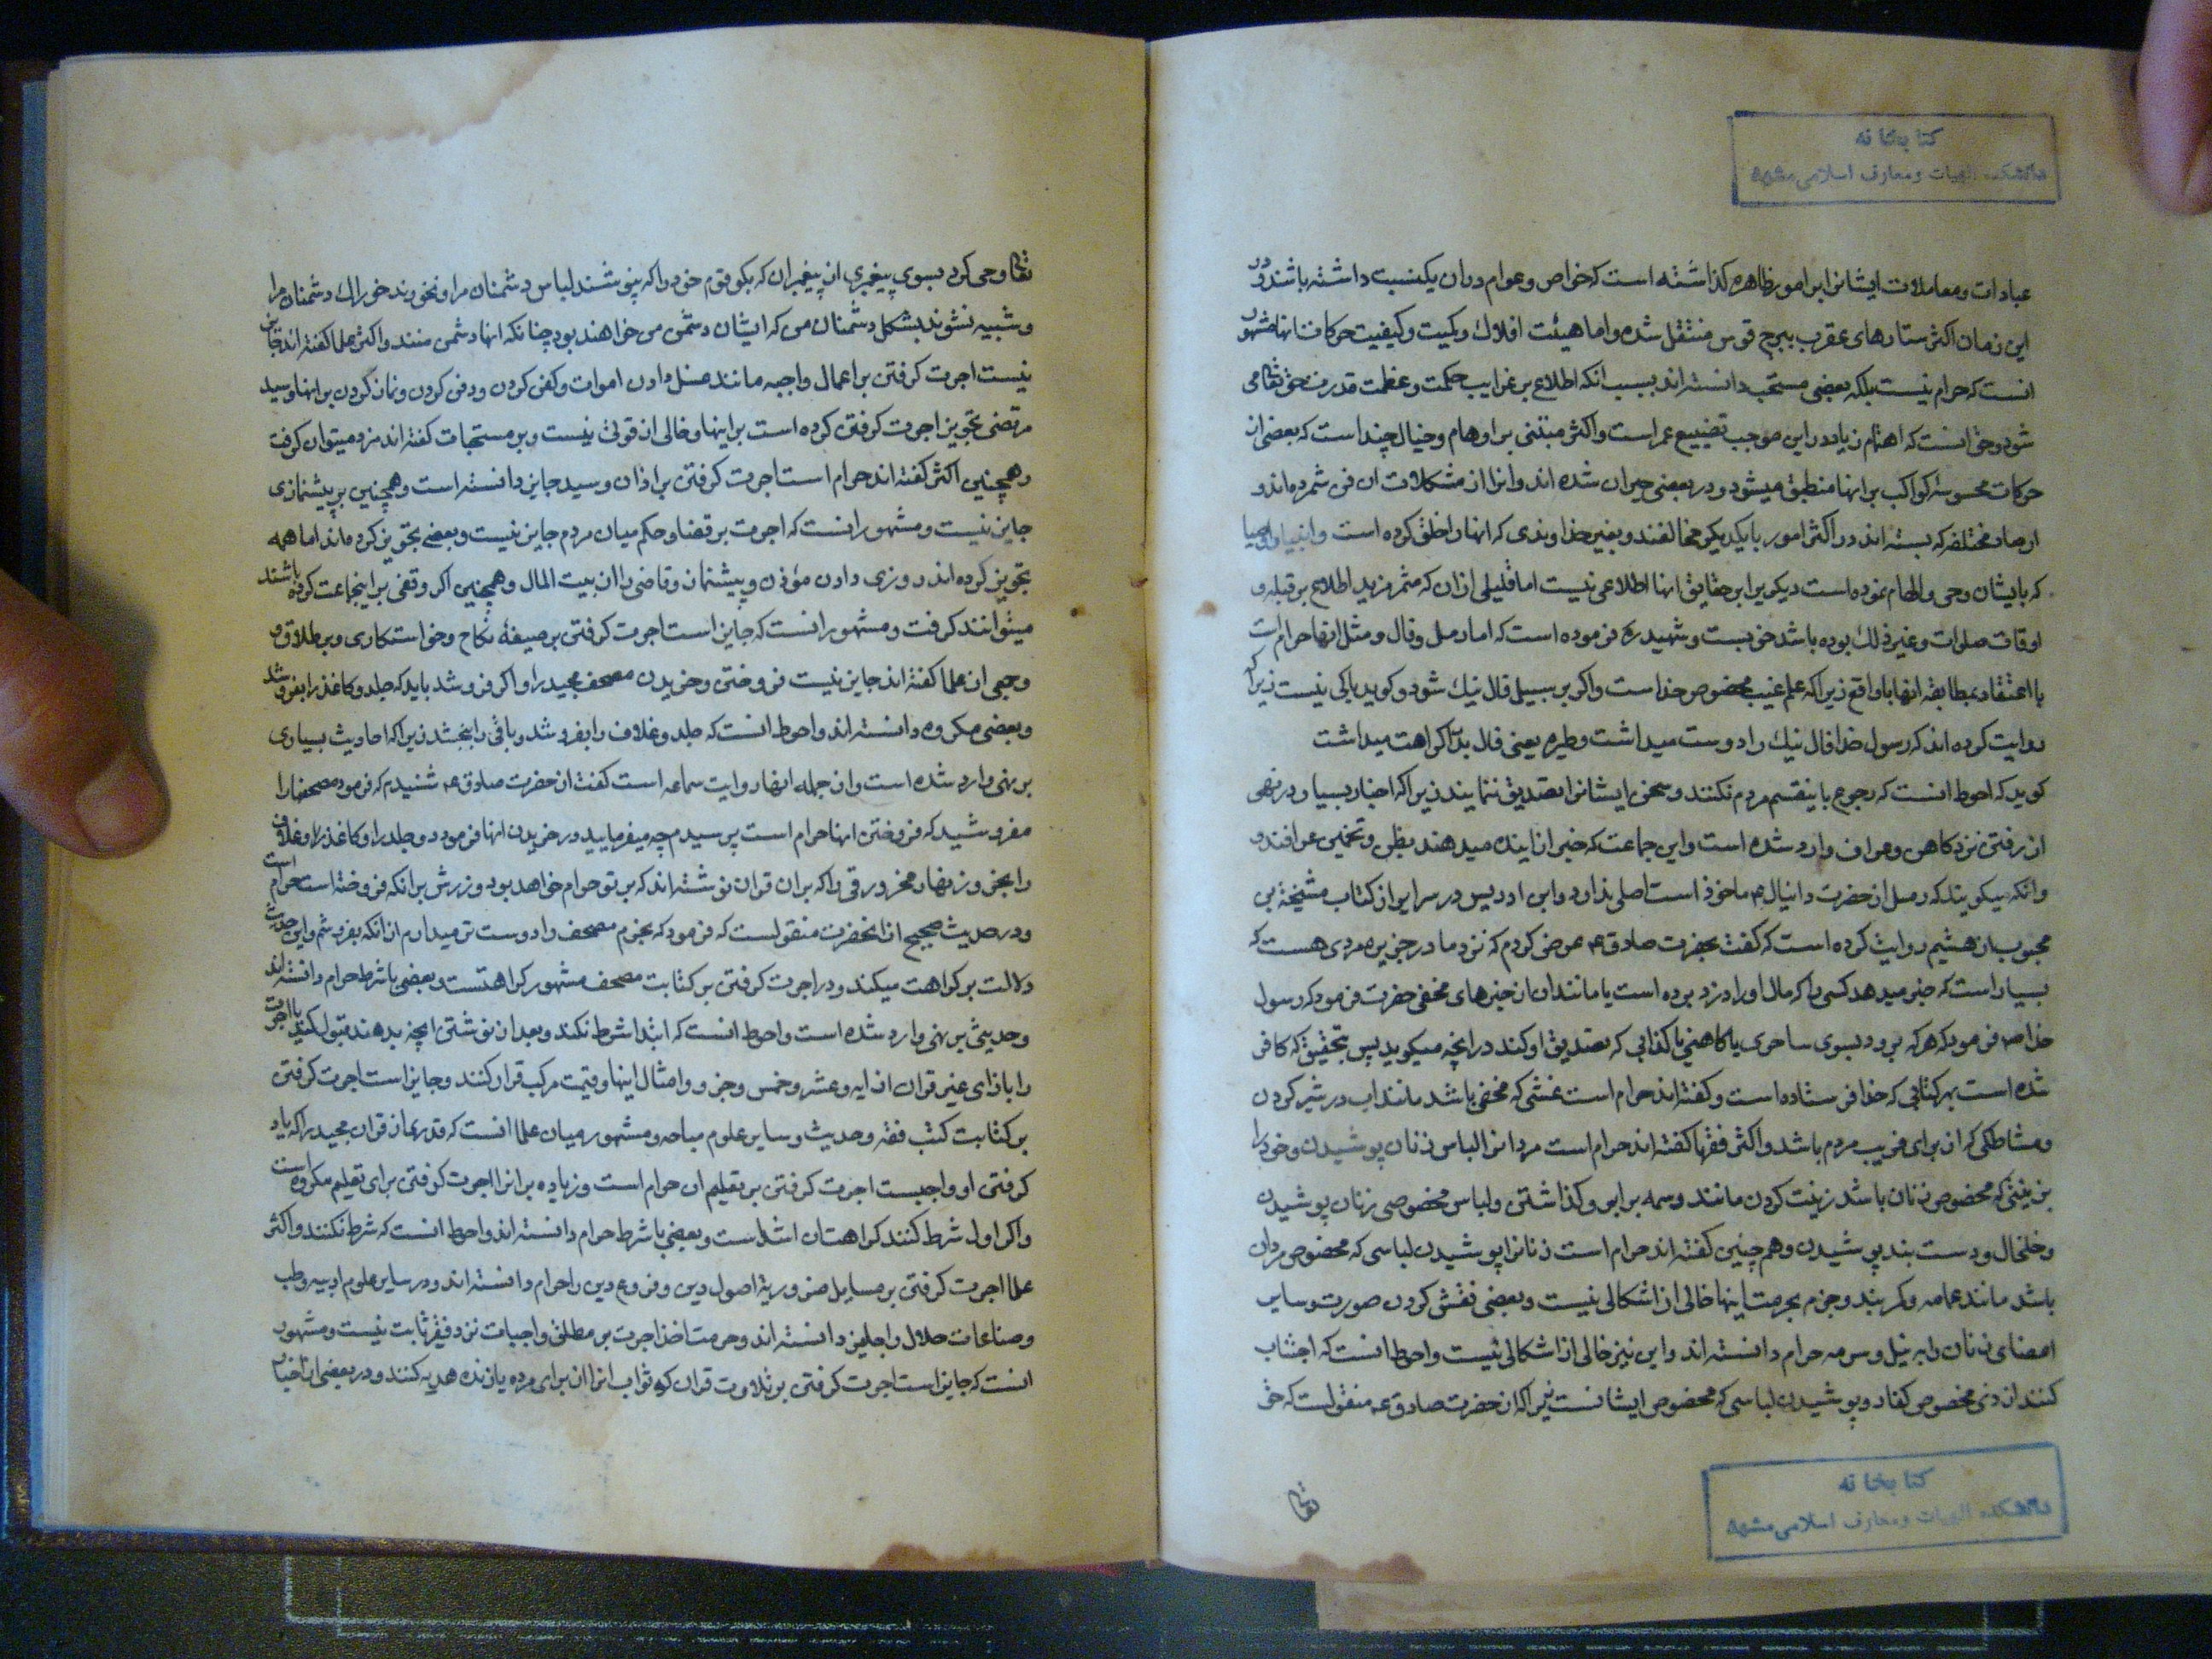 کتابخانه
دانشکده الهیات ومعارف اسلامی مشهد
عبادات ومعاملات ایشانرا برامور ظاهره کذاشته است که خواص وعوام دران یکنسبت داشته باشند ودر
این زمان اکثر ستارهای عقرب ببرج قوس منتقل شده واما هیئت افلاک وکمیت وکیفیت حرکات انها مشهور
انست که حرام نیست بلکه بعضی مستحب دانسته اند بسبب انکه اطلاع بر غرایب حکمت وعظمت قدرت حق تعالی می
شود وحق انست که اهتمام زیاد دراین موجب تضییع عمر است واکثر مبتنی بر اوهام وخیال چند است که بعضی از
حرکات محسوسه کواکب برانها منطبق میشود ودر بعضی حیران شده اند وانرا از مشکلات ان فن شمرده اند و
ارصاد مختلفه که بسته اند در اکثر امور بایکدیکر مخالفند وبغیر خداوندی که انها را خلق کرده است وانبیا واوصیا
که بایشان وحی والهام نموده است دیکریرا بر حقایق انها اطلاعی نیست اما قلیلی ازان که مثمر مزید اطلاع بر قبله و
اوقات صلوات وغیر ذلک بوده باشد خوبست وشهید ره فرموده است که اما رمل وفال ومثل انها حرام است
با اعتقاد بمطابقه انها با واقع زیرا که علم غیب مخصوص خداست واکر بر سبیل فال نیک شود وکوید باکی نیست زیرا که
روایت کرده اند که رسول خدا فال نیک را دوست میداشت وطیره یعنی فال بد را کراهت میداشت
کوید که احوط انست که رجوع باینقسم مردم نکنند وسخن ایشانرا تصدیق ننمایند زیرا که اخبار بسیار در نهی
از رفتن نزد کاهن وعراف وارد شده است واین جماعت که خبر از اینده میدهند بظن وتخمین عرافند و
وانکه میکویند که رمل از حضرت دانیال ماخوذ است اصلی ندارد وابن ادریس در سرایر از کتاب مشیخه بن
محبوب از هشیم روایت کرده است که کفت بحضرت صادق ع عرض کردم که نزد ما در جزیره مردی هست که
بسیار است که خبر میدهد کسی را که مال اورا دزد برده است یا مانند ان از خبرهای مخفی حضرت فرمود که رسول
خدا ص فرمود که هر که برود بسوی ساحری یا کاهنی یا کذابی که تصدیق او کند درانچه میکوید پس بتحقیق که کافر
شده است بهر کتابی که خدا فرستاده است وکفته اند حرام است غشی که مخفی باشد مانند اب در شیر کردن
ومشاطکی که ان برای فریب مردم باشد واکثر فقها کفته اند حرام است مردانرا لباس زنان پوشیدن وخود را
بزینتی که مخصوص زنان باشد زینت کردن مانند وسمه بر ابرو کذاشتن ولباس مخصوص زنان پوشیدن
وخلخال ودست بند پوشیدن وهم چنین کفته اند حرام است زنانرا پوشیدن لباسی که مخصوص مردان
باشد مانند عمامه وکمربند وجزم بحرمت اینها خالی از اشکالی نیست وبعضی نقش کردن صورت وسایر
اعضای زنان را به نیل وسرمه حرام دانسته اند واین نیز خالی از اشکالی نیست واحوط انست که اجتناب
کنند از زی مخصوص کفار وپوشیدن لباسی که مخصوص ایشانست زیرا که از حضرت صادق ع منقولست که حق
تعالی
کتابخانه
دانشکده الهیات ومعارف اسلامی مشهد
تعالی وحی کرد بسوی پیغمبری از پیغمبران که بکو قوم خود را که نپوشند لباس دشمنان مرا ونخورند خوراک دشمنان مرا
وشبیه نشوند بشکل دشمنان من که ایشان دشمن من خواهند بود چنانکه انها دشمن منند واکثر علما کفته اند جایز
نیست اجرت کرفتن بر اعمال واجبه مانند غسل دادن اموات وکفن کردن ودفن کردن ونماز کردن برانها وسید
مرتضی تجویز اجرت کرفتن کرده است بر اینها وخالی از قوتی نیست وبر مستحبات کفته اند مزد میتوان کرفت
وهمچنین اکثر کفته اند حرام است اجرت کرفتن بر اذان وسید جایز دانسته است وهمچنین بر پیشنمازی
جایز نیست ومشهور انست که اجرت بر قضا وحکم میان مردم جایز نیست وبعضی تجویز کرده اند اما همه
تجویز کرده اند روزی دادن مؤذن وپیشنماز وقاضی را از بیت المال وهمچنین اکر وقفی بر اینجماعت کرده باشند
میتوانند کرفت ومشهور انست که جایز است اجرت کرفتن بر صیغه نکاح وخواستکاری وبر طلاق و
وجمعی از علما کفته اند جایز نیست فروختن وخریدن مصحف مجید را واکر فروشد باید که جلد وکاغذ را بفروشد
وبعضی مکروه دانسته اند واحوط انست که جلد وغلاف را بفروشد وباقی را ببخشد زیرا که احادیث بسیاری
بر نهی وارد شده است وازجمله انها روایت سماعه است کفت از حضرت صادق ع شنیدم که فرمود مصحفها را
مفروشید که فروختن انها حرام است پرسیدم چه میفرمایید در خریدن انها فرمود جلد را وکاغذ را وغلاف
را بخر وزنهار مخر ورقی را که بران قران نوشته اند که بر تو حرام خواهد بود وزرش برانکه فروخته است حرام است
ودر حدیث صحیح از انحضرت منقولست که فرمود که بخرم مصحف را دوست تر میدارم از انکه بفروشم واین حدیث
دلالت بر کراهت میکند ودر اجرت کرفتن بر کتابت مصحف مشهور کراهتست وبعضی با شرط حرام دانسته اند
وحدیثی بر نهی وارد شده است واحوط انست که ابتدا شرط نکند وبعد از نوشتن انچه بدهند قبول کند یا اجرت
را بازای غیر قران از ایه وعشر وخمس وجزو وامثال اینها وقیمت مرکب قرار کنند وجایز است اجرت کرفتن
بر کتابت کتب فقه وحدیث وسایر علوم مباحه ومشهور میان علما انست که قدری از قران مجید را که یاد
کرفتن او واجبست اجرت کرفتن بر تعلیم ان حرام است وزیاده بر انرا اجرت کرفتن برای تعلیم مکروه است
واکر اول شرط کنند کراهتش اشد است وبعضی با شرط حرام دانسته اند واحوط انست که شرط نکنند واکثر
علما اجرت کرفتن بر مسایل ضروریه اصول دین وفروع دین را حرام دانسته اند ودر سایر علوم ادبیه وطب
وصناعات حلال را جایز دانسته اند وحرمت اخذ اجرت بر مطلق واجبات نزد فقیر ثابت نیست ومشهور
انست که جایز است اجرت کرفتن بر تلاوت قران که ثواب انرا از برای مرده یا زنده هدیه کنند ودر بعضی از اخبار